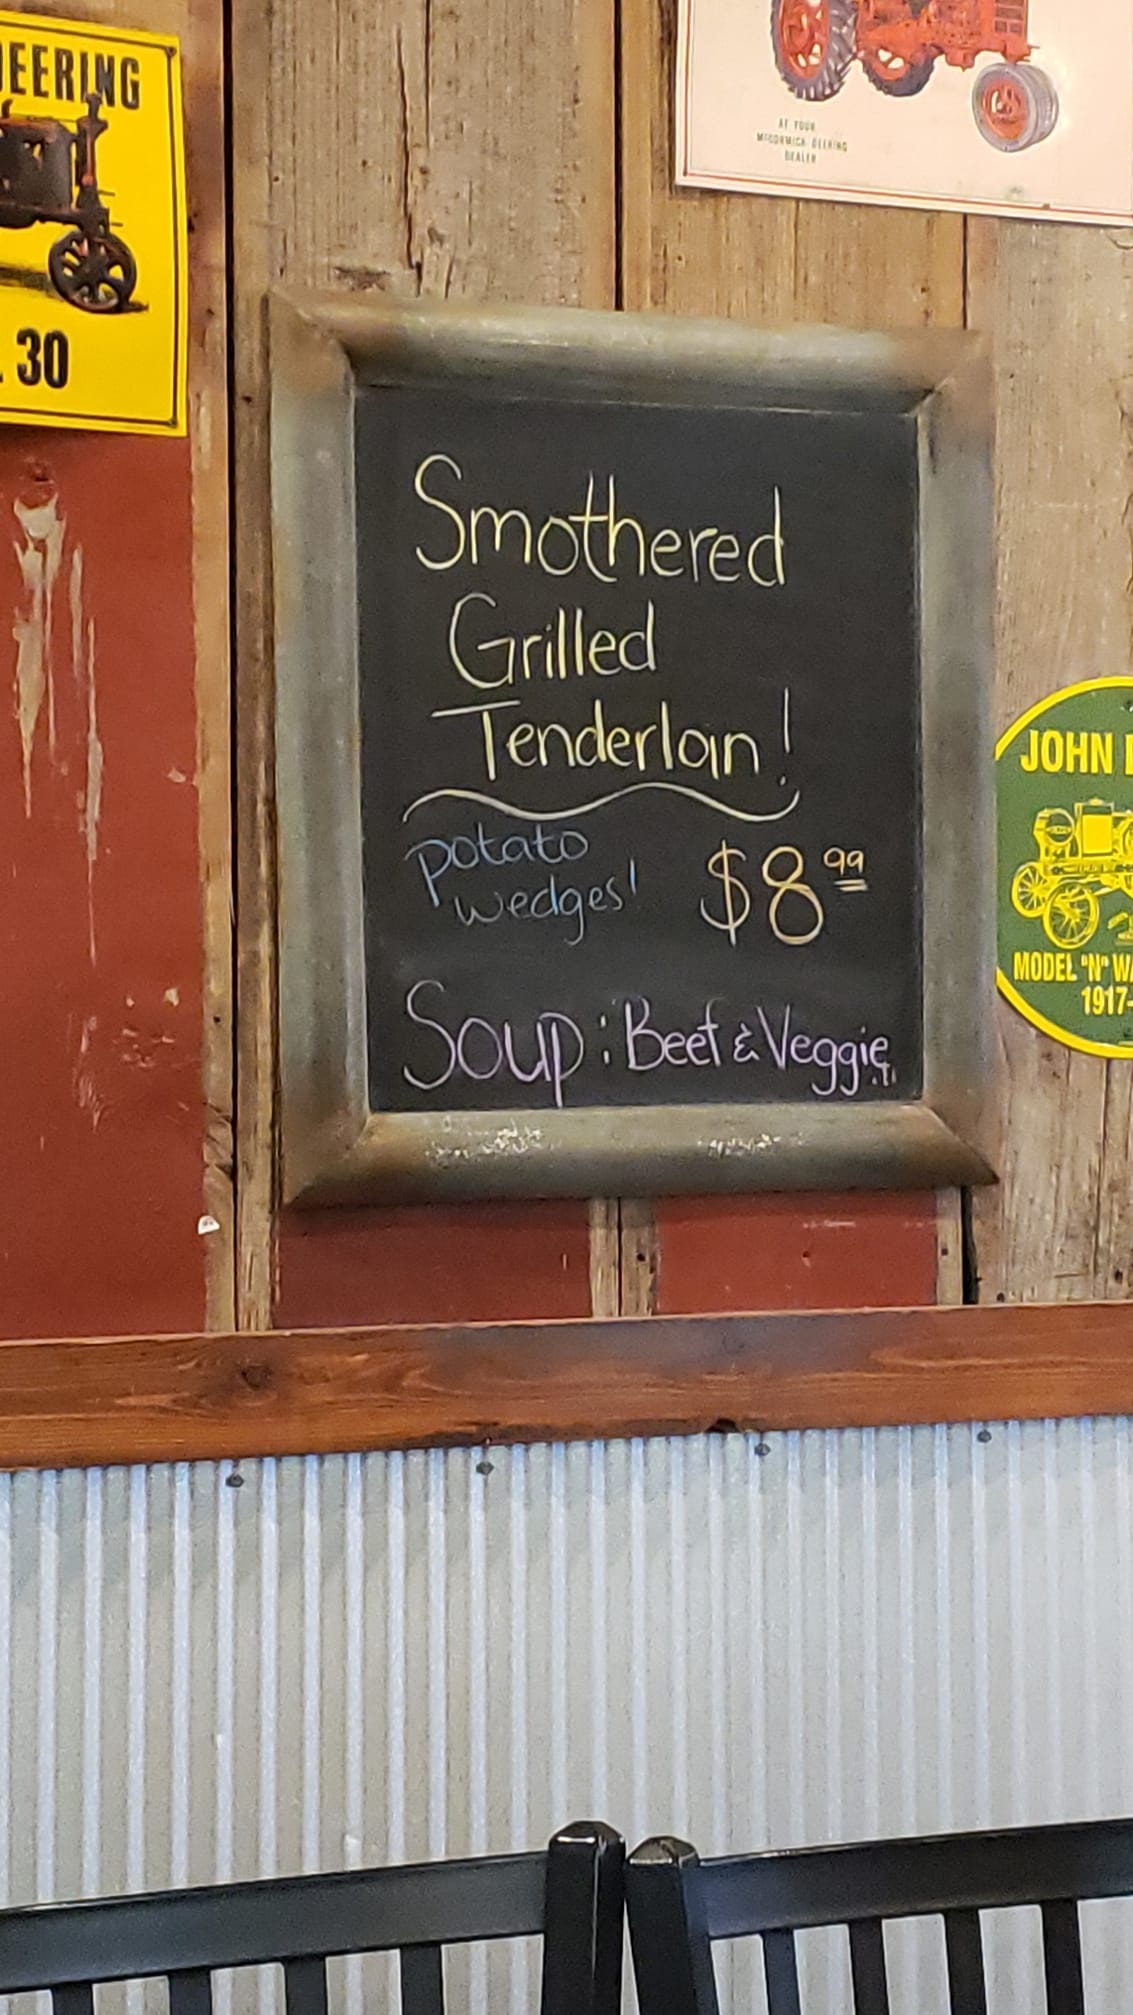 DEERING
30
AT YOUR
McCORMICK-DEERING
DEALER
Smothered
Grilled
Tenderloin!
potato
wedges!
$8.99
Soup: Beef & Veggie
JOHN
MODEL "N" WA
1917-